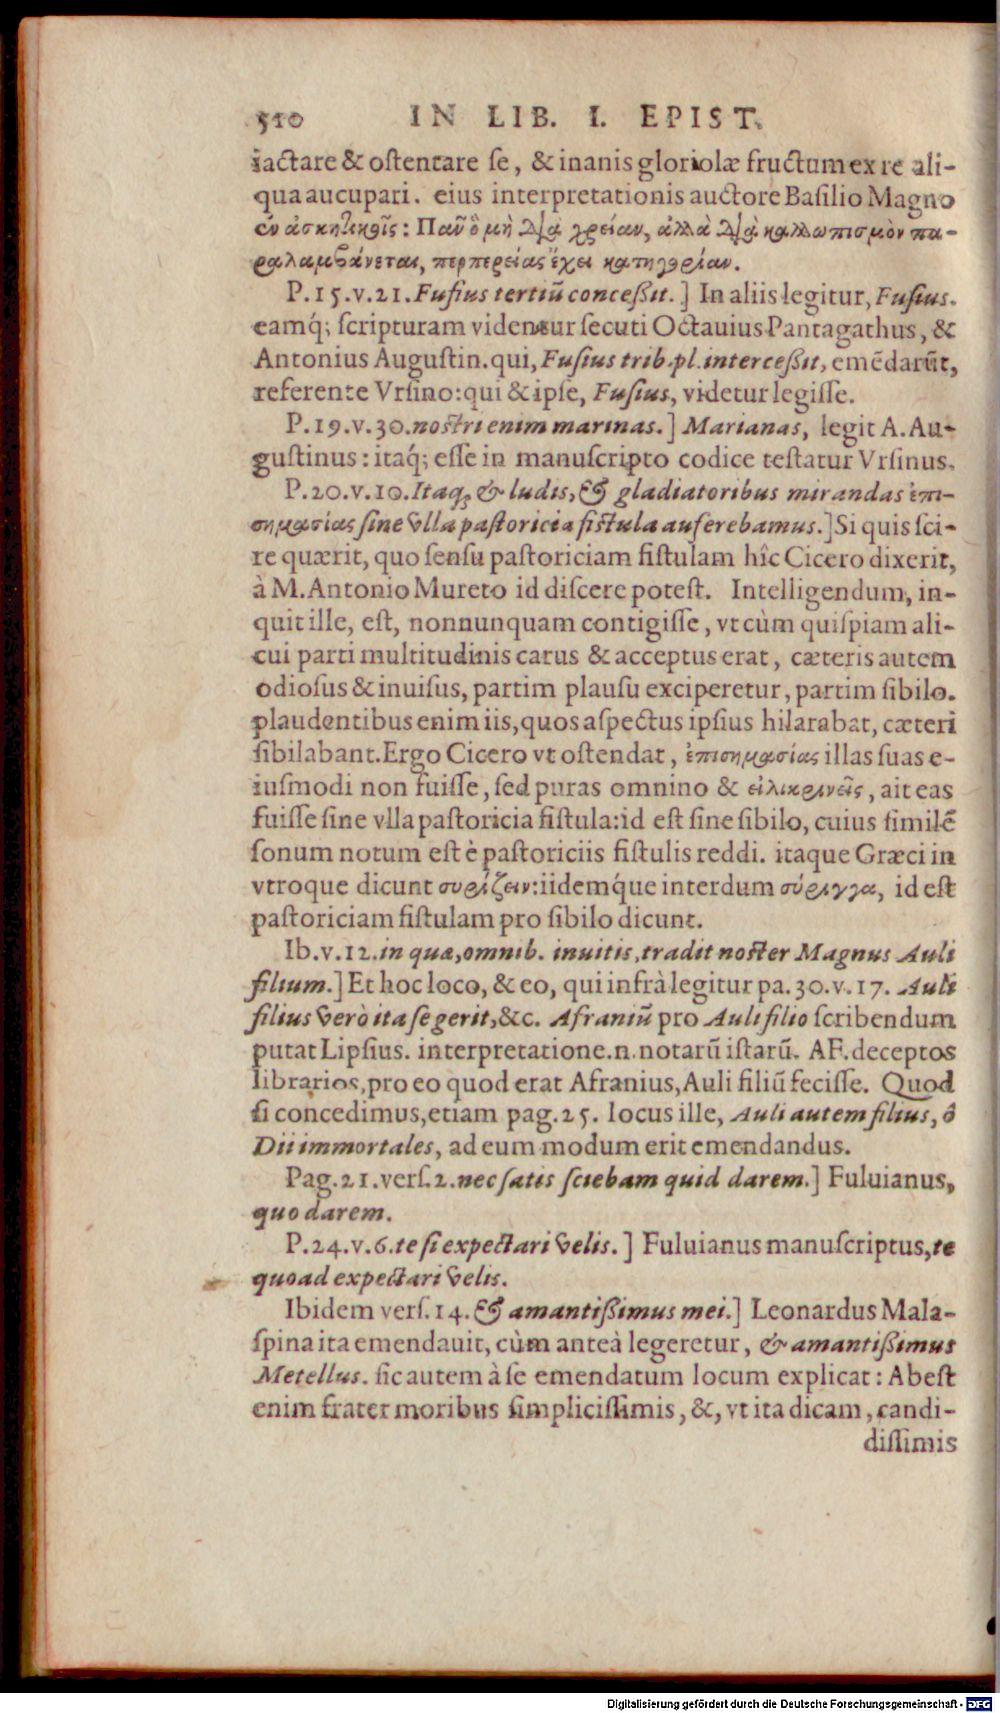 510 IN LIB. I. EPIST.
iactare & ostentare se, & inanis gloriolæ fructum ex re ali-
qua aucupari. eius interpretationis auctore Basilio Magno
ἐν ἀσκητικοῖς: Πᾶν ὃ μὴ διὰ χρείαν, ἀλλὰ διὰ καλλωπισμὸν πα-
ραλαμβάνεται, περπερείας ἔχει κατηγορίαν.
P.15.v.21. Fufius tertiũ conceßit.] In aliis legitur, Fusius.
eamq́; scripturam videntur secuti Octauius Pantagathus, &
Antonius Augustin. qui, Fusius trib. pl. interceßit, emẽdarũt,
referente Vrsino: qui & ipse, Fusius, videtur legisse.
P.19.v.30. nostri enim marinas.] Marianas, legit A. Au-
gustinus: itaq́; esse in manuscripto codice testatur Vrsinus.
P.20.v.10. Itaq; & ludis, & gladiatoribus mirandas ἐπι-
σημασίας sine vlla pastoricia fistula auferebamus.] Si quis sci-
re quærit, quo sensu pastoriciam fistulam hîc Cicero dixerit,
à M. Antonio Mureto id discere potest. Intelligendum, in-
quit ille, est, nonnunquam contigisse, vt cùm quispiam ali-
cui parti multitudinis carus & acceptus erat, cæteris autem
odiosus & inuisus, partim plausu exciperetur, partim sibilo.
plaudentibus enim iis, quos aspectus ipsius hilarabat, cæteri
sibilabant. Ergo Cicero vt ostendat, ἐπισημασίας illas suas e-
iusmodi non fuisse, sed puras omnino & εἰλικρινεῖς, ait eas
fuisse sine vlla pastoricia fistula: id est sine sibilo, cuius similẽ
sonum notum est è pastoriciis fistulis reddi. itaque Græci in
vtroque dicunt συρίζειν: iidemq́ue interdum σύριγγα, id est
pastoriciam fistulam pro sibilo dicunt.
Ib.v.12. in quæ, omnib. inuitis, tradit noster Magnus Auli
filium.] Et hoc loco, & eo, qui infrà legitur pa. 30. v. 17. Auli
filius verò ita se gerit, &c. Afraniũ pro Auli filio scribendum
putat Lipsius. interpretatione .n. notarũ istarũ. AF. deceptos
librarios, pro eo quod erat Afranius, Auli filiũ fecisse. Quod
si concedimus, etiam pag. 25. locus ille, Auli autem filius, ô
Dii immortales, ad eum modum erit emendandus.
Pag. 21. vers. 2. nec satis sciebam quid darem.] Fuluianus,
quo darem.
P.24.v.6. te si expectari velis.] Fuluianus manuscriptus, te
quoad expectari velis.
Ibidem vers. 14. & amantißimus mei.] Leonardus Mala-
spina ita emendauit, cùm anteà legeretur, & amantißimus
Metellus. sic autem à se emendatum locum explicat: Abest
enim frater moribus simplicissimis, &, vt ita dicam, candi-
dissimis
Digitalisierung gefördert durch die Deutsche Forschungsgemeinschaft - DFG